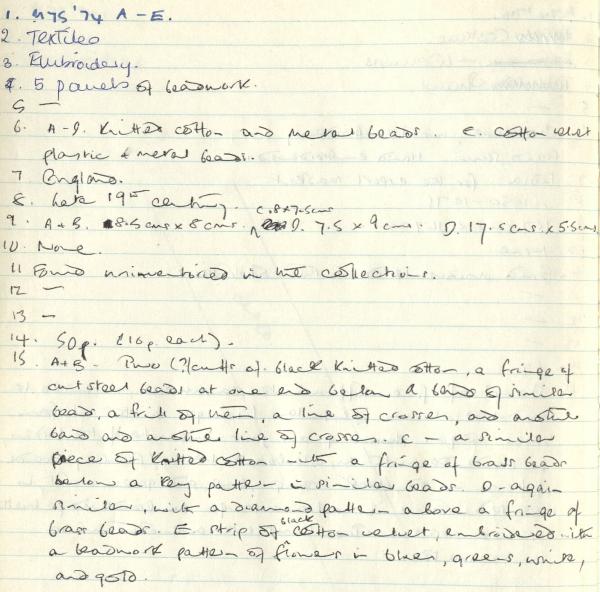 1. M75 '74 A-E.
2. Textiles
3. Embroidery.
4. 5 panels of beadwork.
5 —
6. A-D. Knitted cotton and metal beads. E. cotton velvet
plastic & metal beads.
7 England.
8. Late 19th century.
9. A+B. 8.5cms x 8cms. C. 8x7.5cms D. 7.5 x 9cms. D. 17.5cms x 5.5cms
10. None.
11 Found uninventoried in the collections.
12 —
13 —
14. 50p. (10p each).
15. A+B - Two (?) cuffs of black knitted cotton, a fringe of
cut steel beads at one end below a band of similar
beads, a frill of them, a line of crosses, and another
band and another line of crosses. C - a similar
piece of knitted cotton with a fringe of brass beads
below a key pattern in similar beads. D - again
similar, with a diamond pattern above a fringe of
brass beads. E strip of black cotton velvet, embroidered with
a beadwork pattern of flowers in blues, greens, white,
and gold.